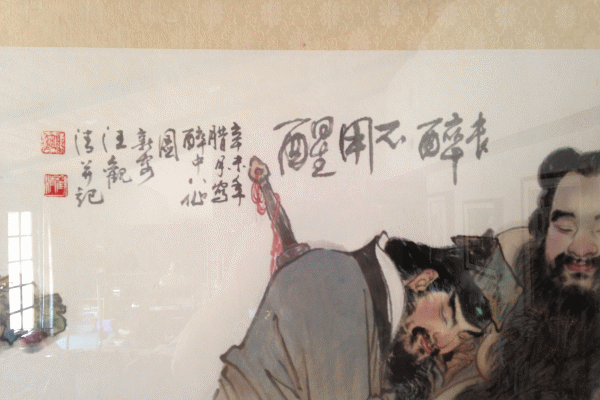 長醉不用醒
辛未年
腊月寫
醉中八仙
圖
新安
汪觀
清并記